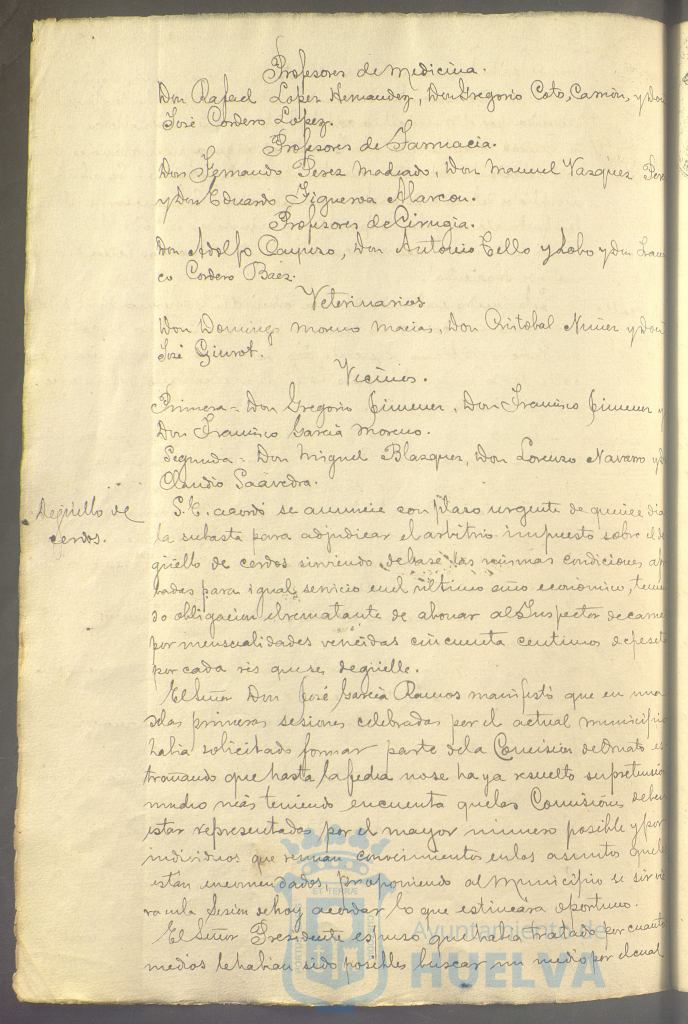 Profesores de Medicina.
Don Rafael Lopez Hernandez, Don Gregorio Coto, Carrion, y Don
José Cordero Lopez.
Profesores de Farmacia.
Don Fernando Perez Machado, Don Manuel Vazquez Pere
y Don Eduardo Figueroa Alarcon.
Profesores de Cirugia.
Don Adolfo Cayuso, Don Antonio Tello y Lobo y Don Franc
co Cordero Báez.
Veterinarios
Don Domingo Moreno Macias, Don Cristobal Nuñez y Don
José
Vecinos.
Primera = Don Gregorio Jimenez, Don Francisco Jimenez y
Don Francisco Garcia Moreno.
Segunda = Don Miguel Blazquez, Don Lorenzo Navarro y D
Claudio Saavedra.
Degüello de
cerdos.
S.E. acordó se anuncie con plazo urgente de quince dia
la subasta para adjudicar el arbitrio impuesto sobre el de
güello de cerdos sirviendo de base las mismas condiciones ap
badas para igual servicio en el último año económico, tenien
do obligacion el rematante de abonar al Inspector de carne
por mensualidades vencidas cincuenta centimos de peset
por cada res que se degüelle.
El Señor Don José Garcia Ramos manifestó que en una
de las primeras sesiones celebradas por el actual municipio
habia solicitado formar parte de la Comision de Ornato es
trañando que hasta la fecha no se haya resuelto su pretensió
mucho más teniendo en cuenta que las Comisiones deben
estar representadas por el mayor número posible y por
individuos que reunan conocimientos en los asuntos que le
estan encomendados proponiendo al Municipio se sirvie
ra en la Sesion de hoy acordar lo que estimara oportuno.
El Señor Presidente espuso que habia tratado por cuanto
medios le habian sido posibles buscar un medio por el cual
ET TERRÆ
Ayuntamiento de
HUELVA